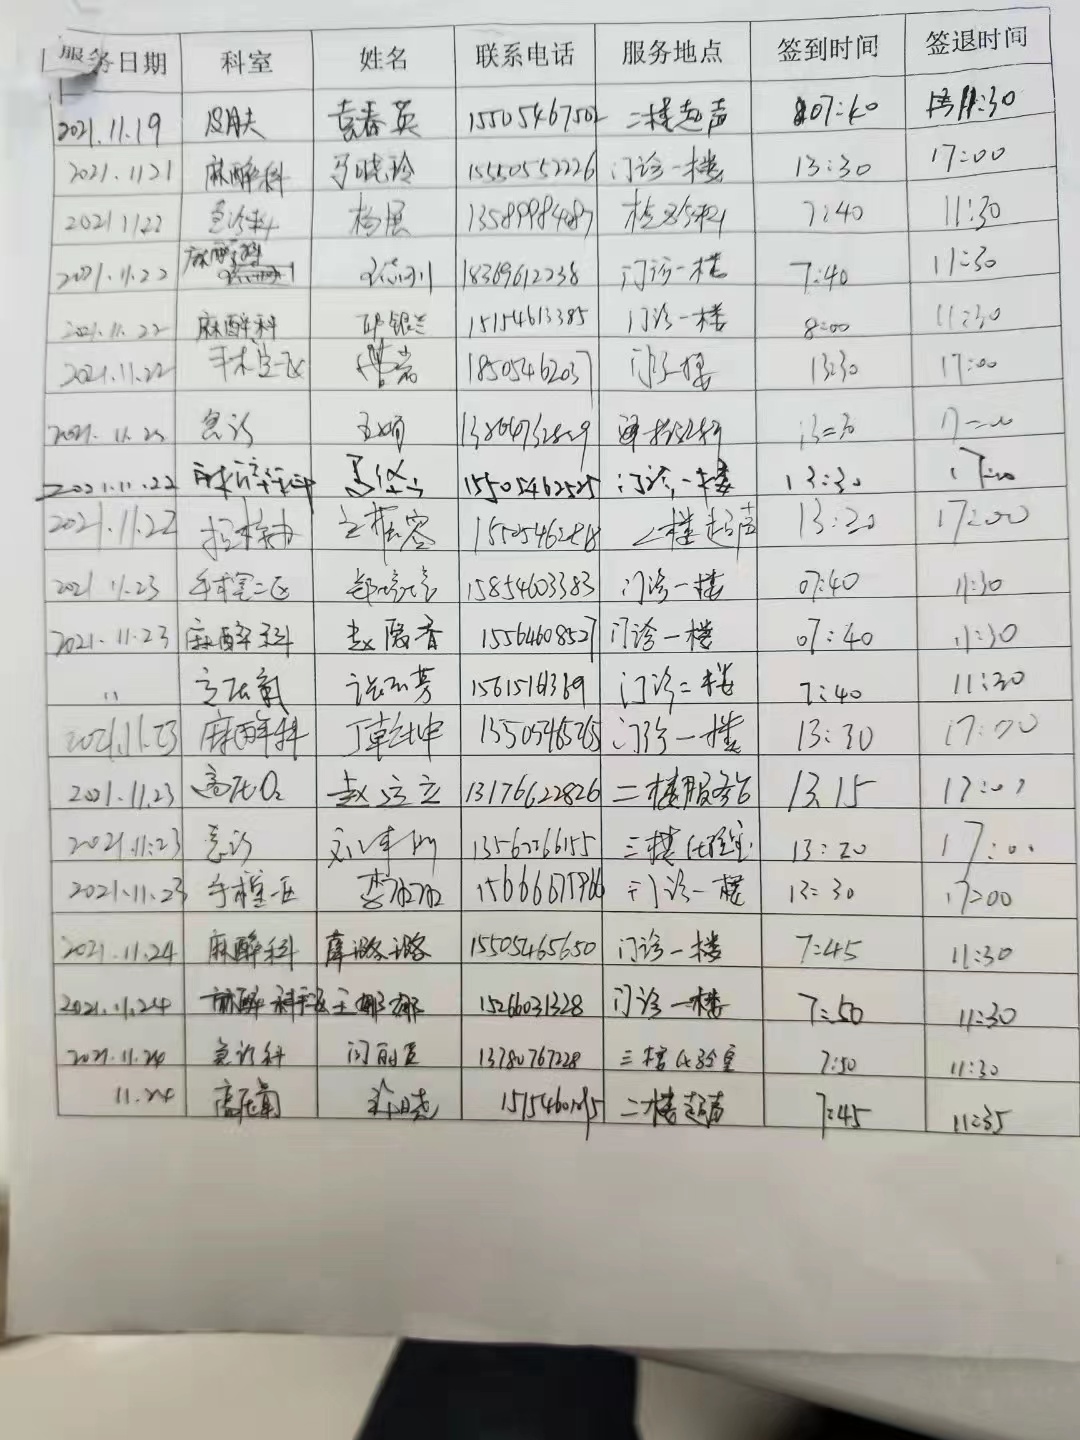 服务日期 科室 姓名 联系电话 服务地点 签到时间 签退时间
2021.11.19 皮肤 袁春英 1550546750 二楼超声 07:40 11:30
2021.11.21 麻醉科 马晓玲 15550552226 门诊一楼 13:30 17:00
2021.11.22 急诊科 杨展 13589984087 7:40 11:30
2021.11.22 麻醉科 18369612238 门诊一楼 7:40 11:30
2021.11.22 麻醉科 邱银兰 15154613385 门诊一楼 8:00 11:30
2021.11.22 手术室一区 18505462037 门诊一楼 13:30 17:00
2021.11.22 急诊 13:30 17:00
2021.11.22 15505462525 门诊一楼 13:30 17:00
2021.11.22 王振容 二楼超声 13:20 17:00
2021.11.23 手术室二区 15854603383 门诊一楼 07:40 11:30
2021.11.23 麻醉科 赵隐香 15564608527 门诊一楼 07:40 11:30
〃 高压氧 门诊二楼 7:40 11:30
2021.11.23 麻醉科 丁乾坤 13550546526 门诊一楼 13:30 17:00
2021.11.23 高压O₂ 赵立立 13176622826 二楼服务台 13:15 17:00
2021.11.23 急诊 13562266155 三楼化验室 13:20 17:00
2021.11.23 手术室一区 李加加 门诊一楼 13:30 17:00
2021.11.24 麻醉科 薛潞潞 15505465650 门诊一楼 7:45 11:30
2021.11.24 麻醉科 王娜娜 15266031328 门诊一楼 7:50 11:30
2021.11.24 急诊科 闫丽夏 13780767228 三楼化验室 7:50 11:30
11.24 高压氧 晓 二楼超声 7:45 11:35